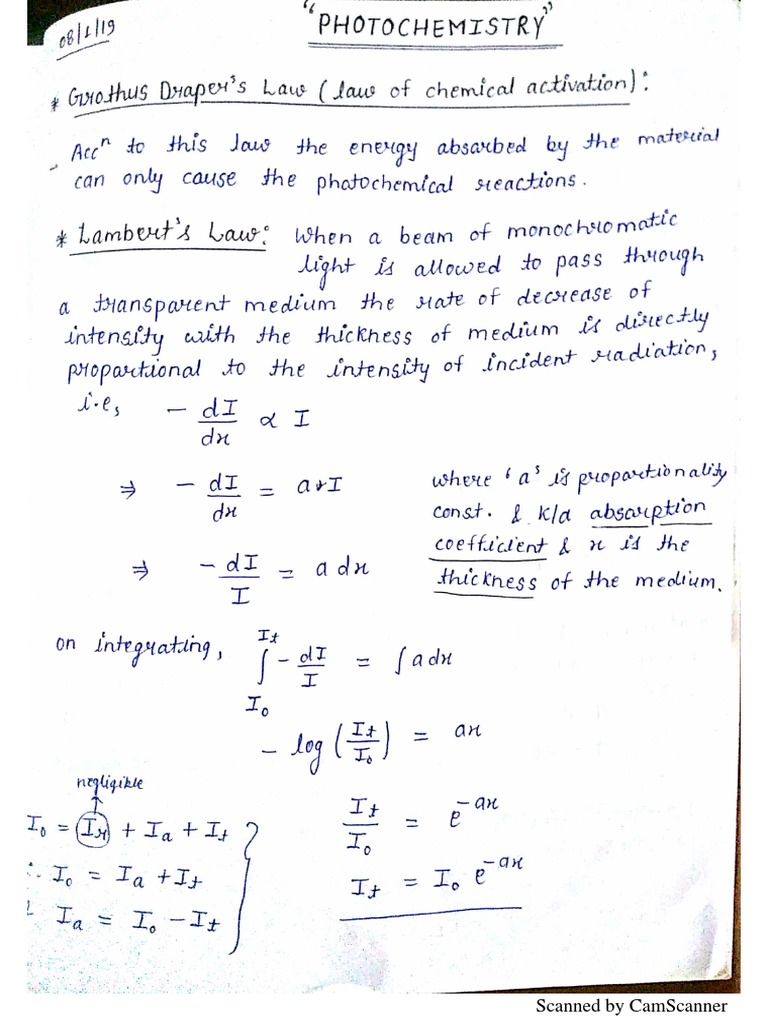 08/1/19
"PHOTOCHEMISTRY"
* Grothus Draper's Law (law of chemical activation):
- Accⁿ to this law the energy absorbed by the material
can only cause the photochemical reactions.
* Lambert's Law: When a beam of monochromatic
light is allowed to pass through
a transparent medium the rate of decrease of
intensity with the thickness of medium is directly
proportional to the intensity of incident radiation,
i.e, - dI/dx ∝ I
⇒ - dI/dx = a*I
where 'a' is proportionality
const. & k/a absorption
⇒ - dI/I = a dx
coefficient & x is the
thickness of the medium.
on integrating, ∫_{I₀}^{It} - dI/I = ∫ a dx
- log (It/I₀) = ax
negligible
I₀ = Ir + Ia + It
It/I₀ = e^{-ax}
∴ I₀ = Ia + It
It = I₀ e^{-ax}
Ia = I₀ - It
Scanned by CamScanner